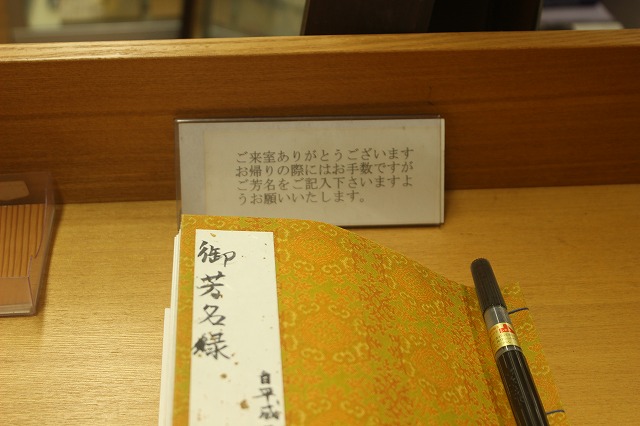 ご来室ありがとうございます
お帰りの際にはお手数ですが
ご芳名をご記入下さいますよ
うお願いいたします。
御芳名様
自平成